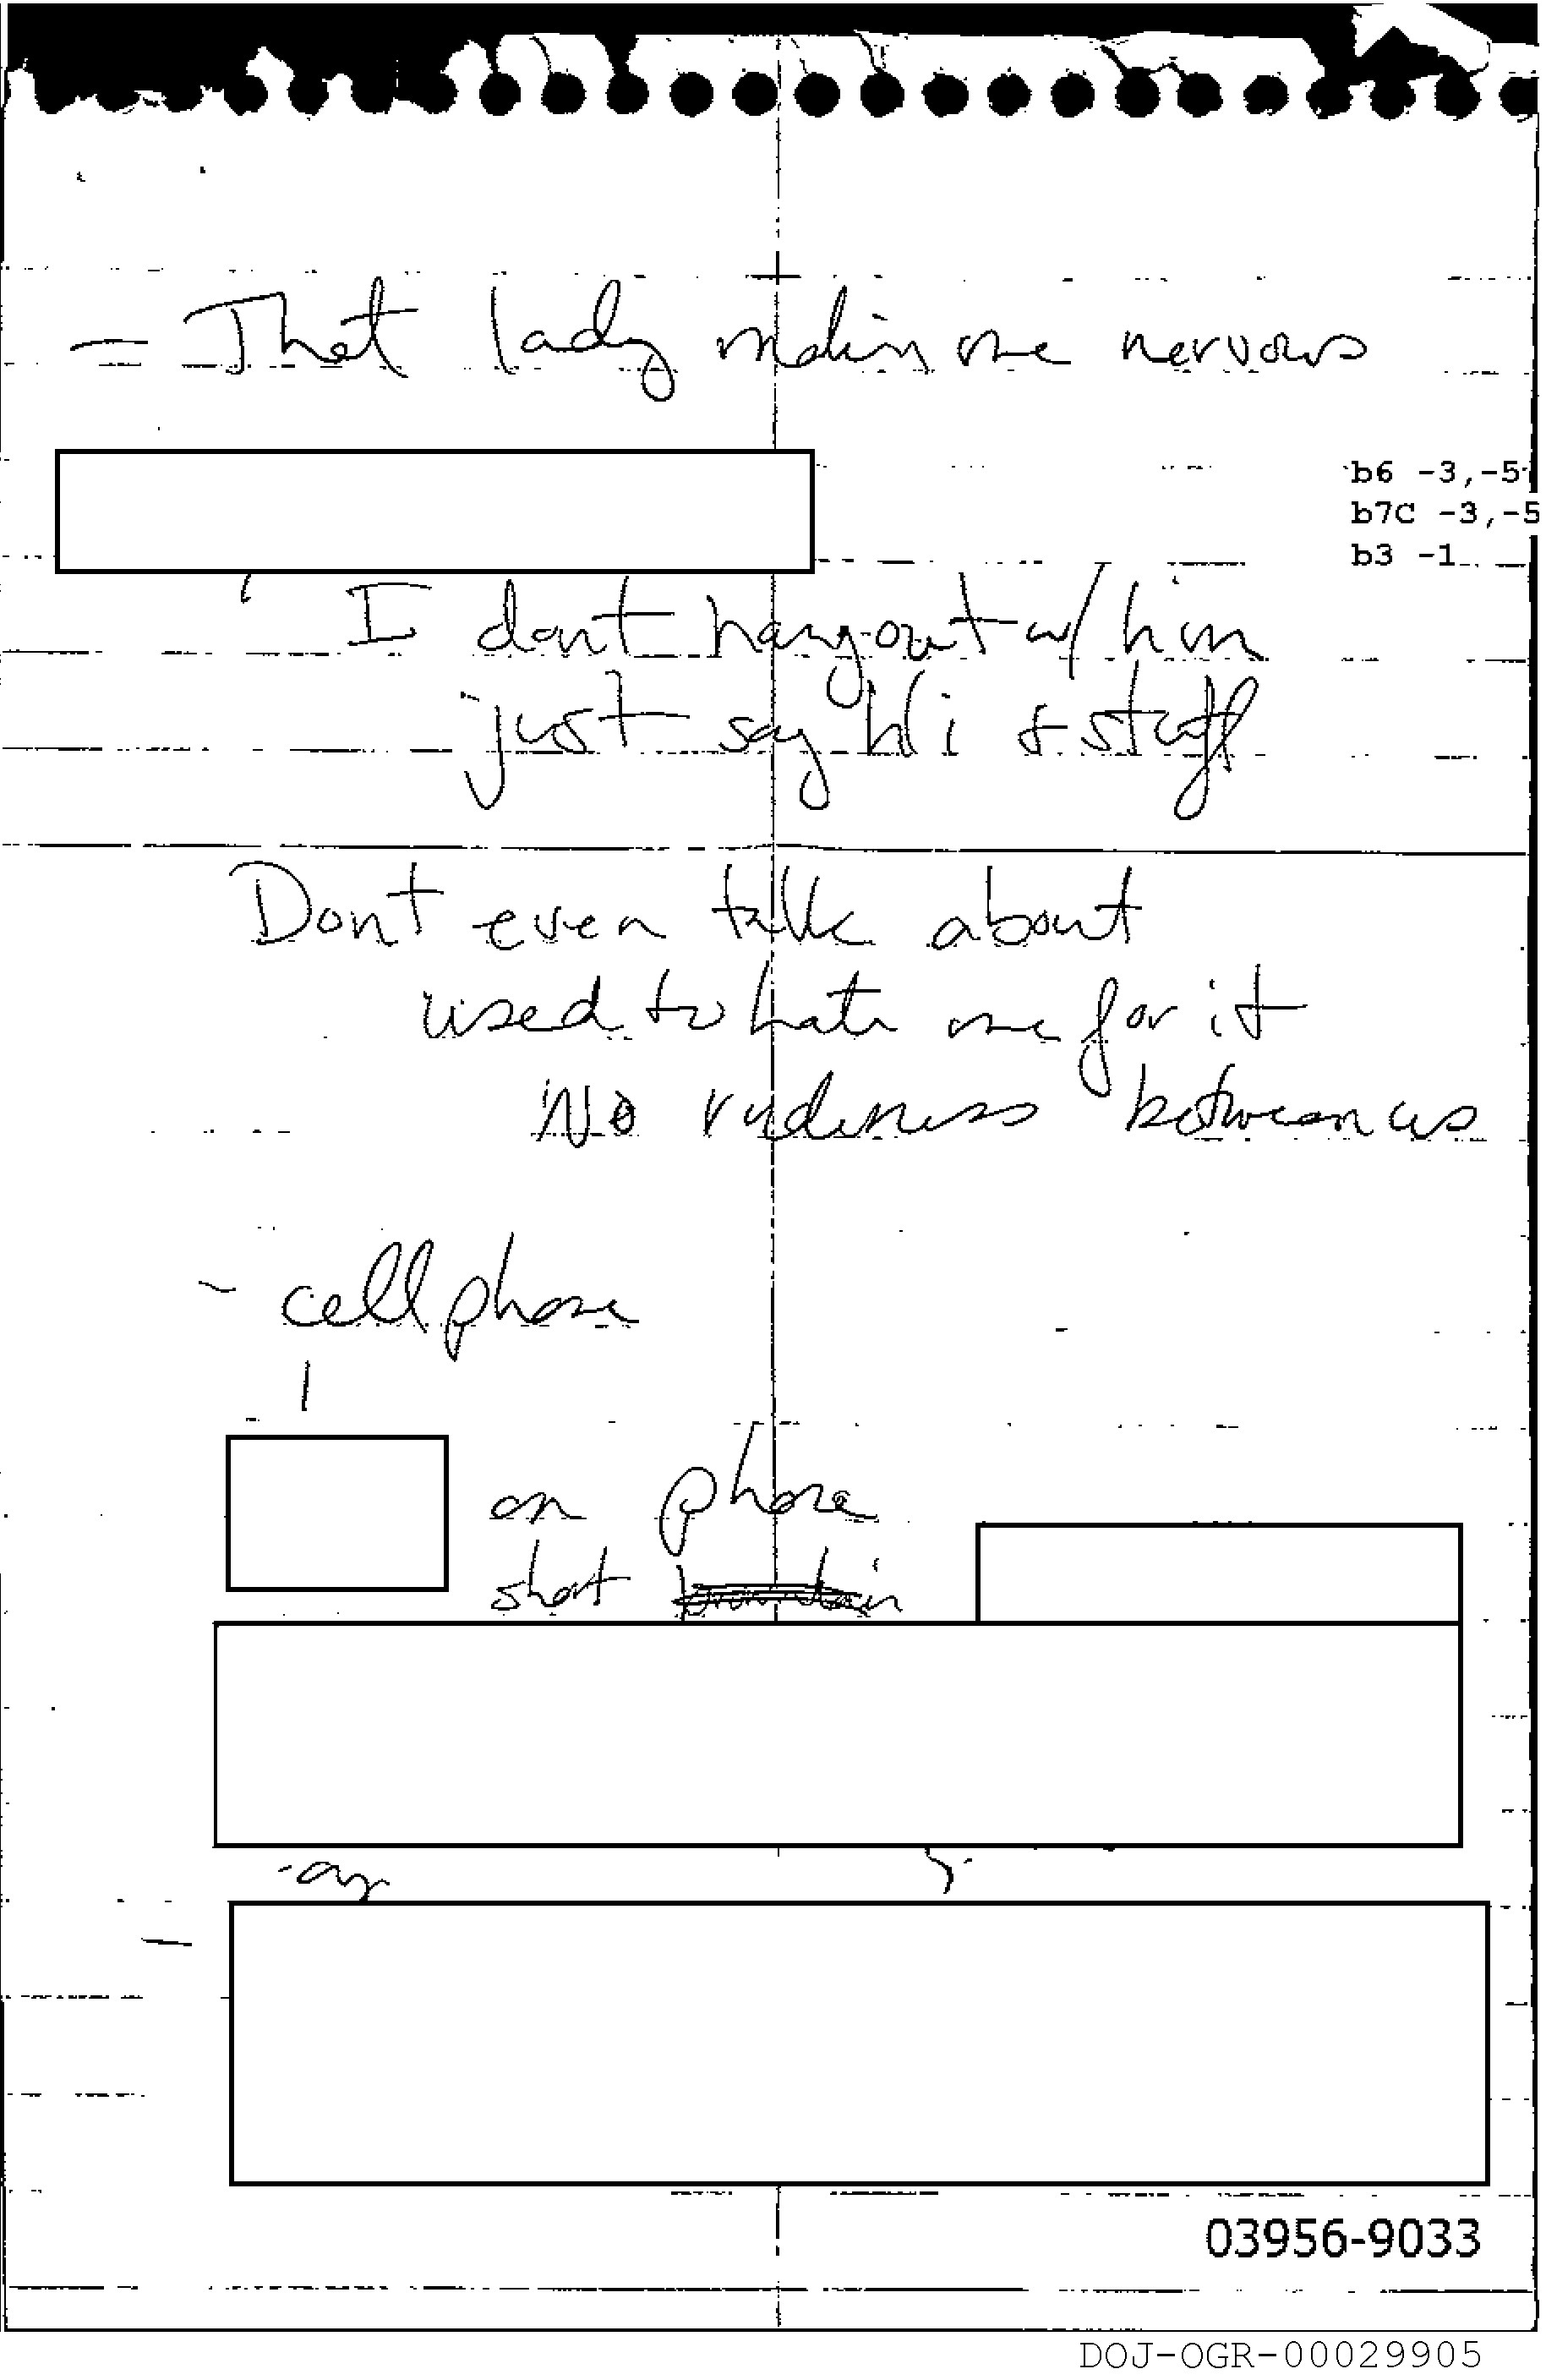 - That lady makin me nervous
b6 -3,-5
b7C -3,-5
b3 -1
I dont hang out w/ him
just say Hi & stuff
Dont even talk about
used to hate me for it
No rudeness between us
- cell phone
on phone
short
03956-9033
DOJ-OGR-00029905